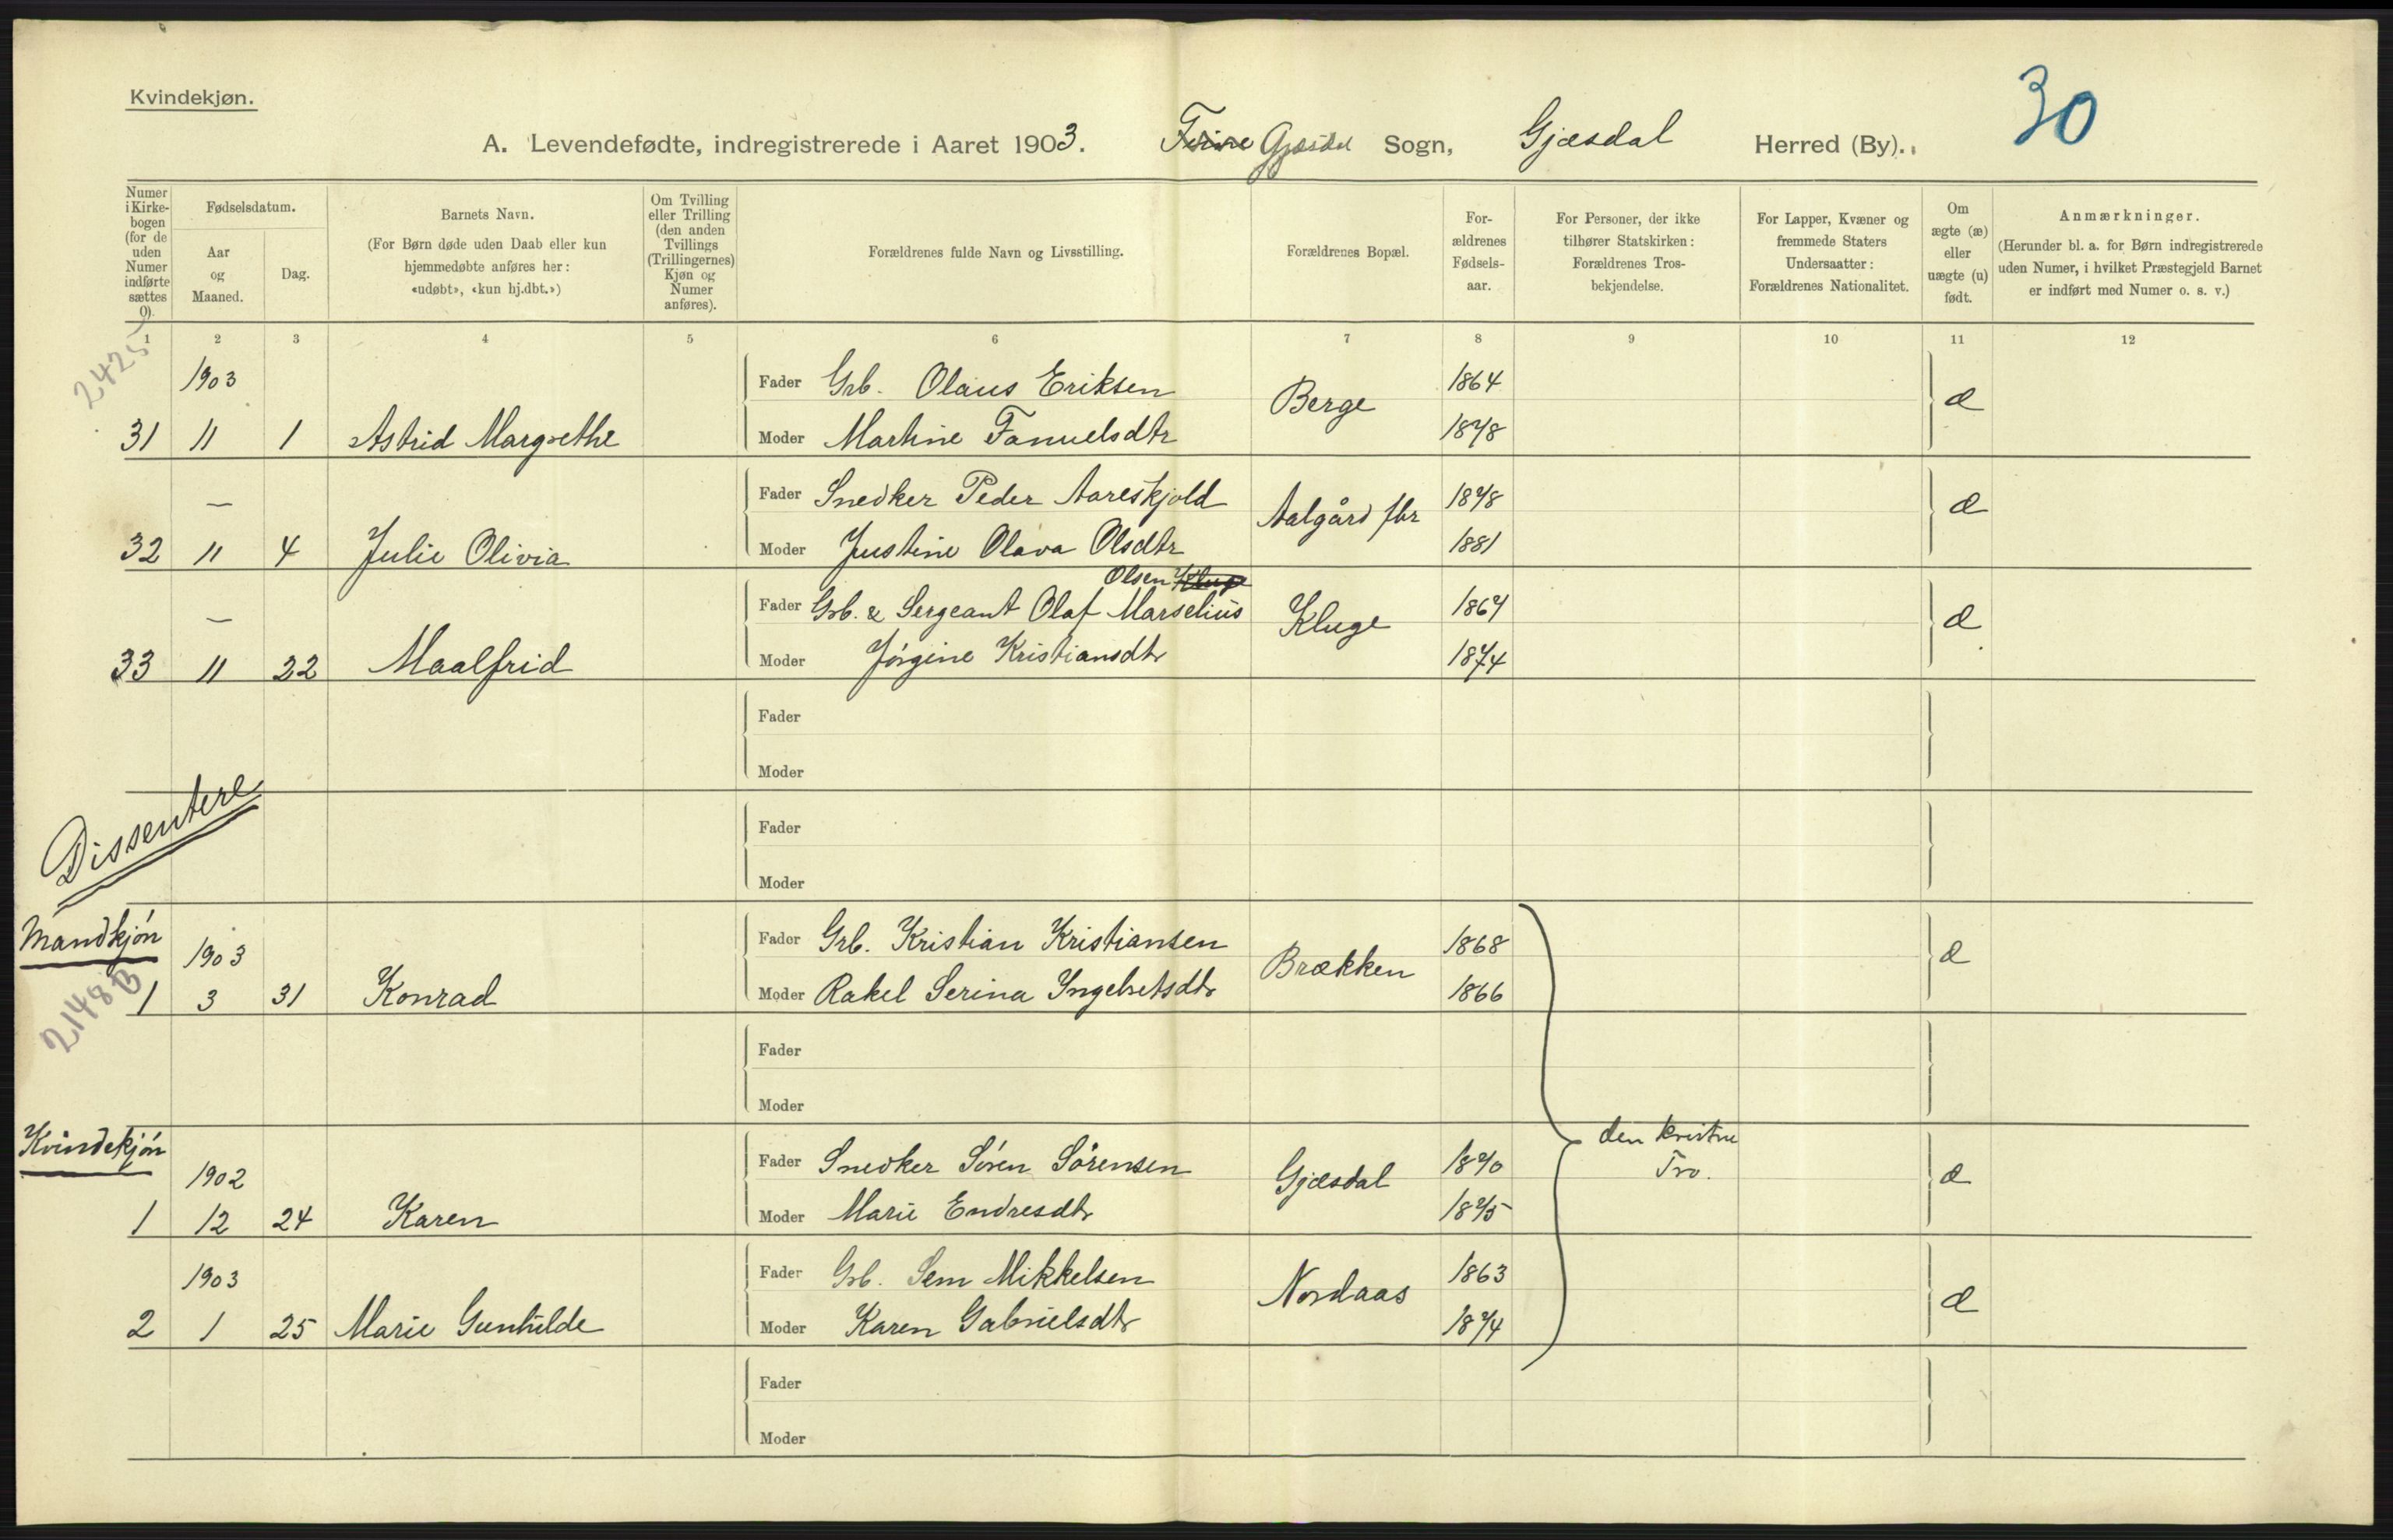 Kvindekjøn.
30
A. Levendefødte, indregistrerede i Aaret 1903. Gjæsdal Sogn, Gjæsdal Herred (By).
Numer i Kirke-bogen (for de uden Numer indførte sættes 0).
Fødselsdatum.
Aar og Maaned.
Dag.
Barnets Navn.
(For Børn døde uden Daab eller kun hjemmedøbte anføres her: «udøbt», «kun hj.dbt.»)
Om Tvilling eller Trilling (den anden Tvillings (Trillingernes) Kjøn og Numer anføres).
Forældrenes fulde Navn og Livsstilling.
Forældrenes Bopæl.
For-ældrenes Fødsels-aar.
For Personer, der ikke tilhører Statskirken: Forældrenes Tros-bekjendelse.
For Lapper, Kvæner og fremmede Staters Undersaatter: Forældrenes Nationalitet.
Om ægte (æ) eller uægte (u) født.
Anmærkninger.
(Herunder bl. a. for Børn indregistrerede uden Numer, i hvilket Præstegjeld Barnet er indført med Numer o. s. v.)
1 2 3 4 5 6 7 8 9 10 11 12
2425
1903 Fader Grb. Olaus Eriksen Berge 1864 æ
31 11 1 Astrid Margrethe Moder Martine Fanuelsdtr 1878
— Fader Snedker Peder Aareskjold Aalgård fbr 1878 æ
32 11 4 Julie Olivia Moder Justine Olava Olsdtr 1881
Olsen Kluge
— Fader Grb. & Sergeant Olaf Marselius Kluge 1867 æ
33 11 22 Maalfrid Moder Jørgine Kristiansdtr 1874
Fader
Moder
Dissentere
Fader
Moder
Mandkjøn
1903 Fader Grb. Kristian Kristiansen Brækken 1868 æ
1 3 31 Konrad Moder Rakel Serina Ingebretsdtr 1866
2148 B
Fader
Moder
Kvindekjøn
den kristne
Tro.
1902 Fader Snedker Søren Sørensen Gjæsdal 1870 æ
1 12 24 Karen Moder Marie Endresdtr 1875
1903 Fader Grb. Sem Mikkelsen Nordaas 1863 æ
2 1 25 Marie Gunhilde Moder Karen Gabrielsdtr 1874
Fader
Moder